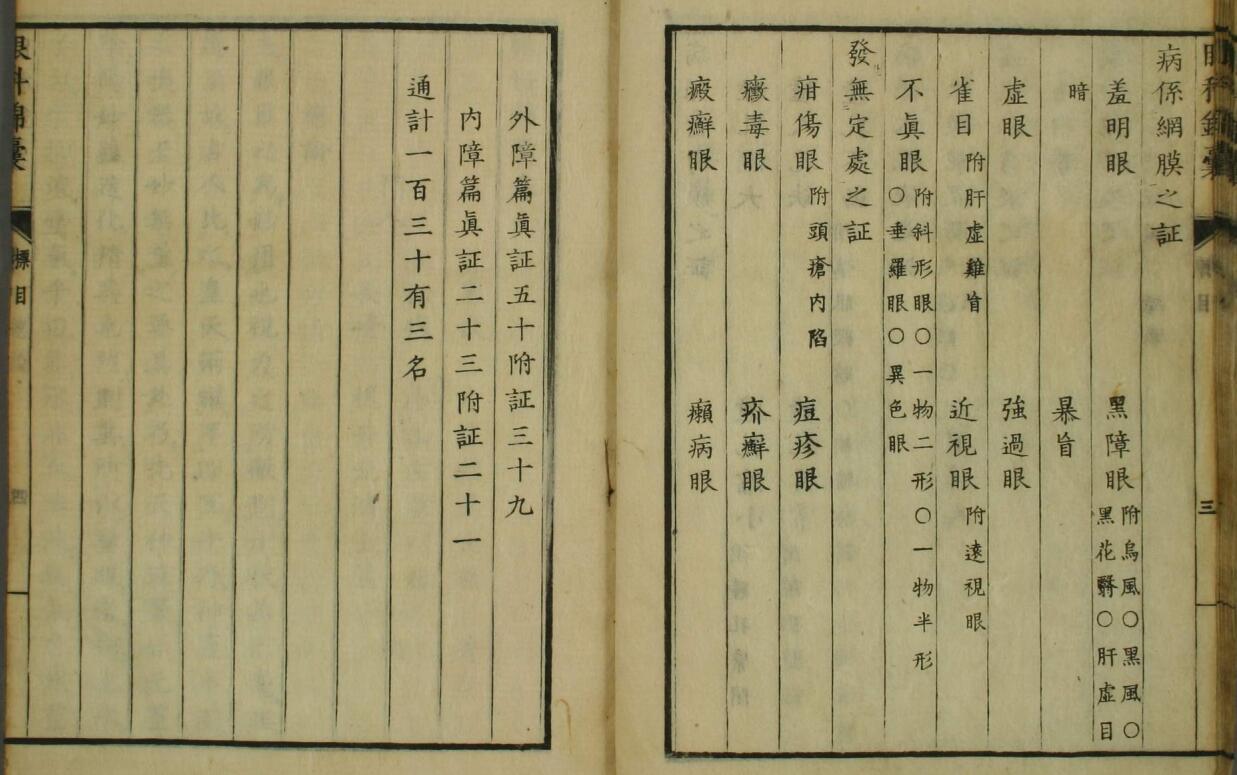 病係網膜之証
羞明眼　黑障眼附烏風〇黑風〇黑花翳〇肝虛目
暗　暴盲
虛眼　強過眼
雀目附肝虛雞盲　近視眼附遠視眼
不眞眼附斜形眼〇一物二形〇一物半形〇垂羅眼〇異色眼
發無定處之証
疳傷眼附頭瘡内陷　痘疹眼
黴毒眼　疥癬眼
癜癬眼　癩病眼
三
外障篇眞証五十附証三十九
内障篇眞証二十三附証二十一
通計一百三十有三名
眼科錦囊
標目
四